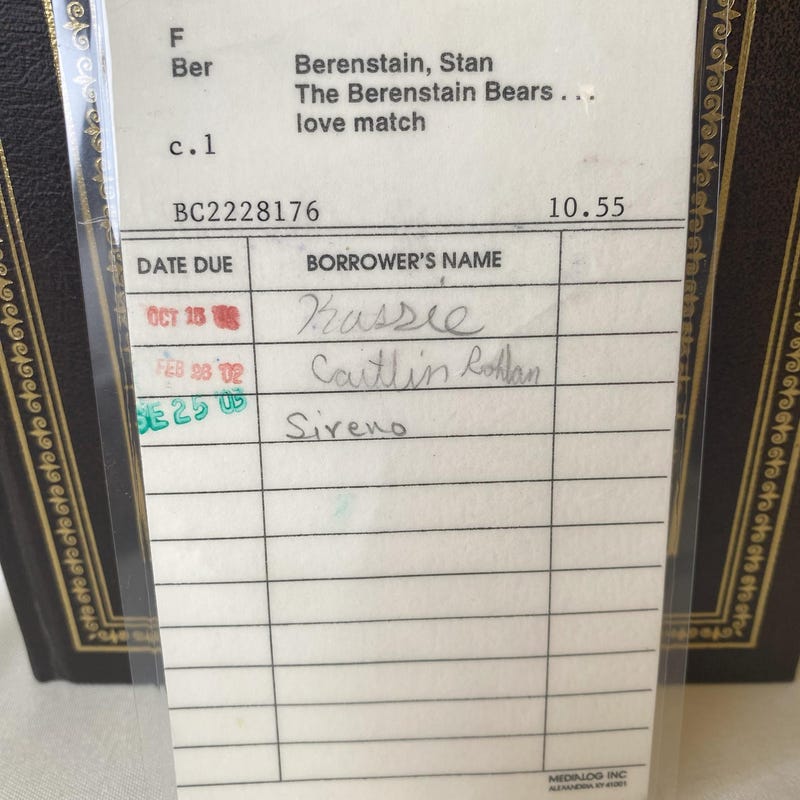 F
Ber Berenstain, Stan
The Berenstain Bears . . .
love match
c.1
BC2228176 10.55
DATE DUE BORROWER'S NAME
OCT 15 Kassie
FEB 26 '02 Caitlin
25 Sireno
MEDIALOG INC
ALEXANDRIA KY 41001